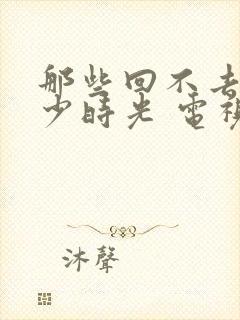 那些回不去
少時光 電視
沐聲